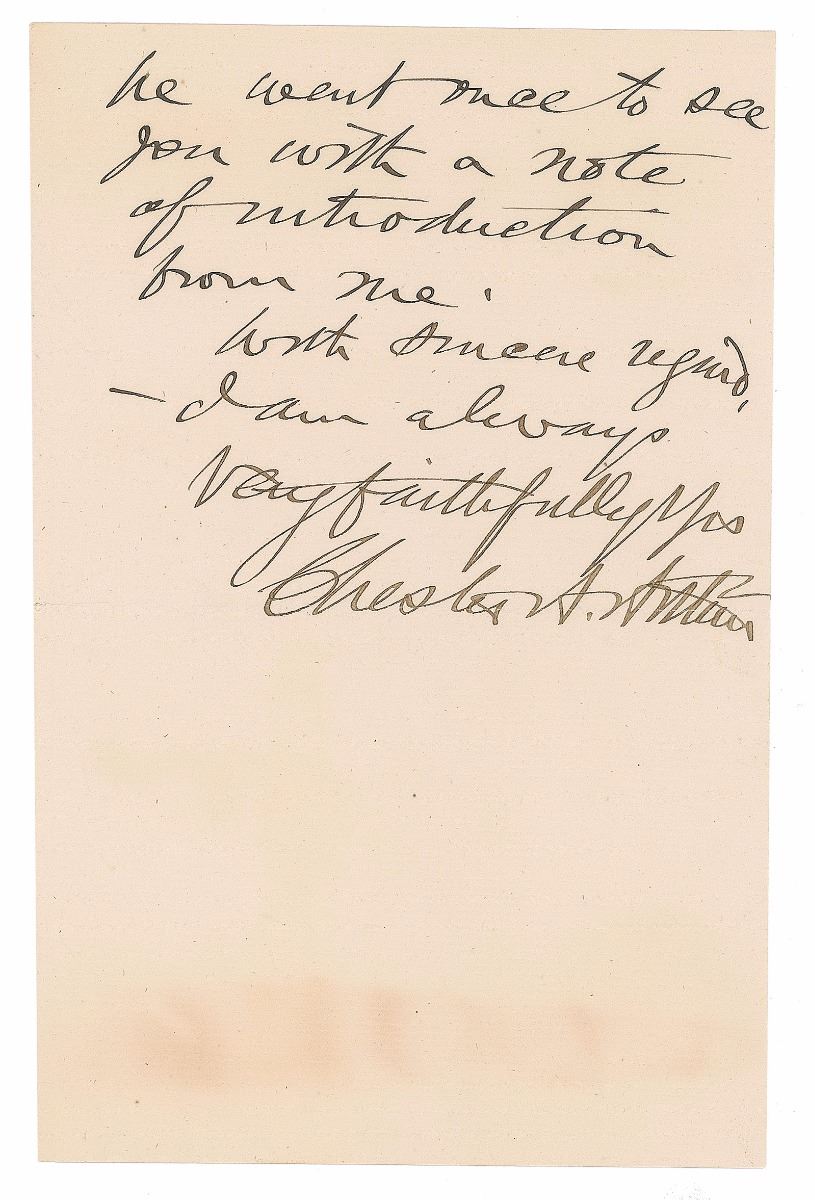 he went once to see
you with a note
of introduction
from me.
With sincere regard,
– I am always
Very faithfully Yrs
Chester A. Arthur